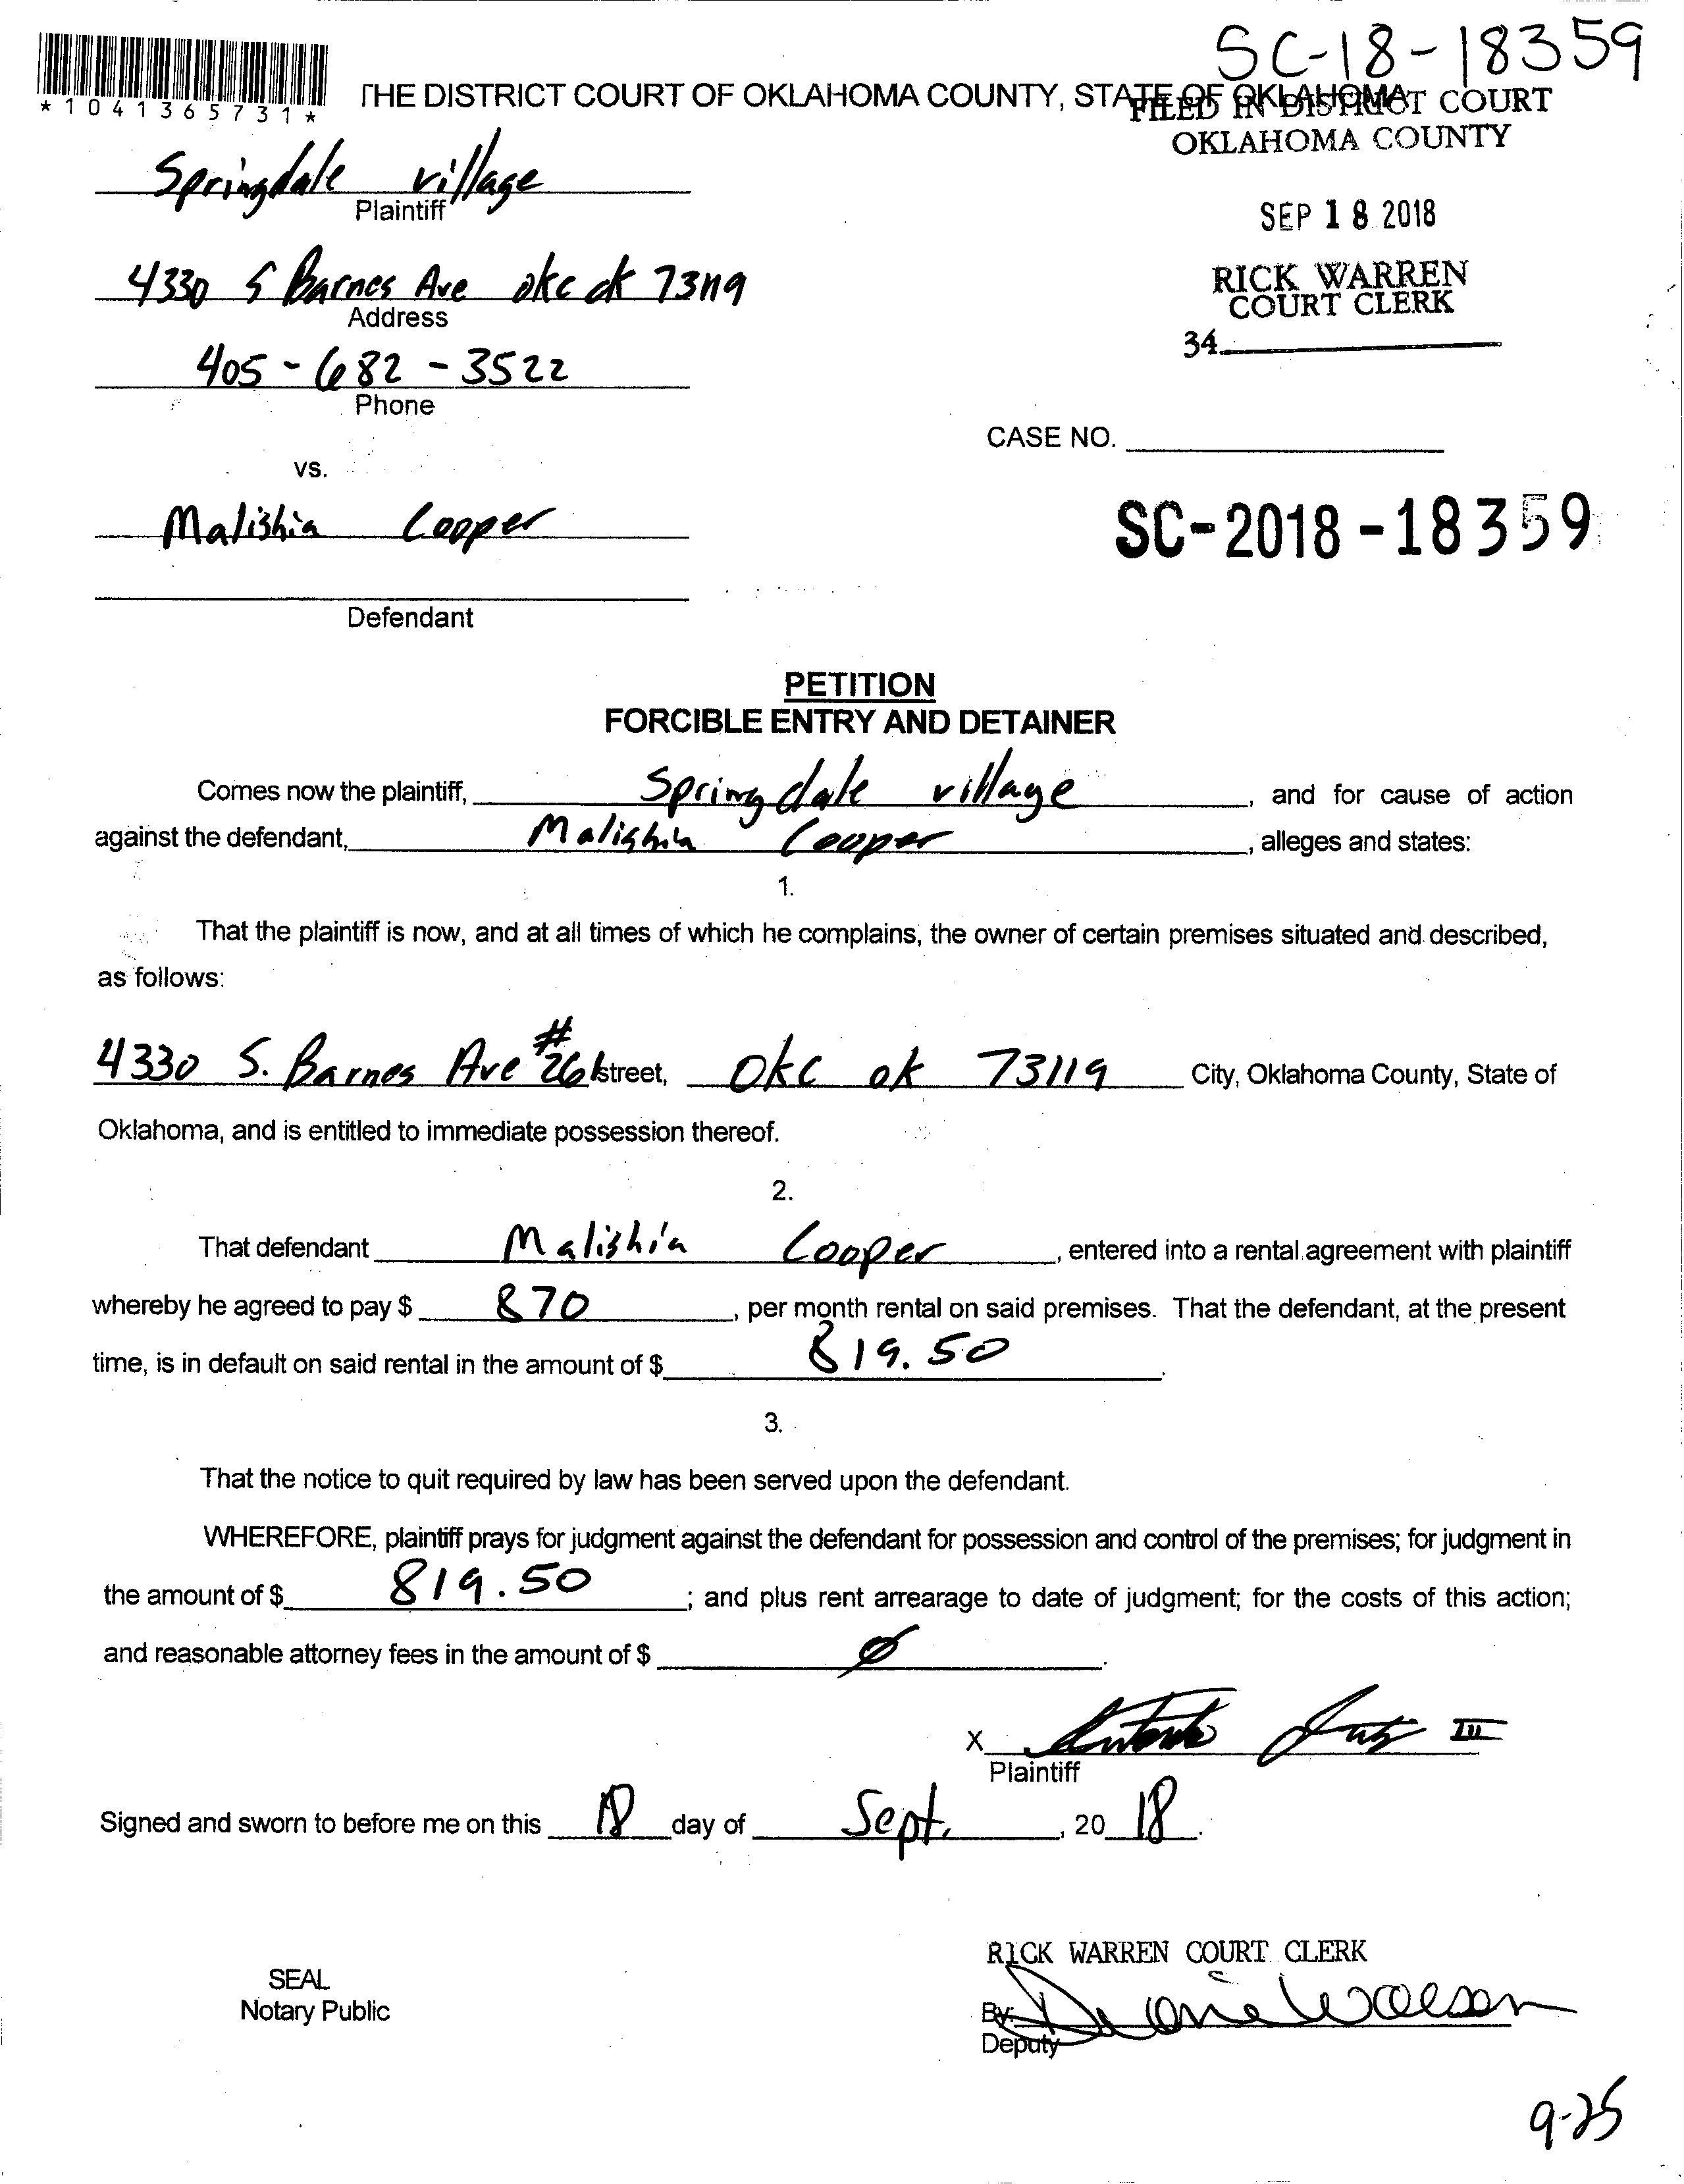 SC-18-18359
*1041365731*
THE DISTRICT COURT OF OKLAHOMA COUNTY, STATE OF OKLAHOMA
FILED IN DISTRICT COURT
OKLAHOMA COUNTY
Springdale village
Plaintiff
SEP 18 2018
4330 S Barnes Ave okc ok 73119
Address
RICK WARREN
COURT CLERK
34
405-682-3522
Phone
CASE NO.
vs.
Malishia Cooper
SC-2018-18359
Defendant
PETITION
FORCIBLE ENTRY AND DETAINER
Comes now the plaintiff, Springdale village, and for cause of action
against the defendant, Malishia Cooper, alleges and states:
1.
That the plaintiff is now, and at all times of which he complains, the owner of certain premises situated and described,
as follows:
4330 S. Barnes Ave # street, Okc ok 73119 City, Oklahoma County, State of
Oklahoma, and is entitled to immediate possession thereof.
2.
That defendant Malishia Cooper, entered into a rental agreement with plaintiff
whereby he agreed to pay $ 870, per month rental on said premises. That the defendant, at the present
time, is in default on said rental in the amount of $ 819.50.
3.
That the notice to quit required by law has been served upon the defendant.
WHEREFORE, plaintiff prays for judgment against the defendant for possession and control of the premises; for judgment in
the amount of $ 819.50; and plus rent arrearage to date of judgment; for the costs of this action;
and reasonable attorney fees in the amount of $ Ø.
X III
Plaintiff
Signed and sworn to before me on this 18 day of Sept., 20 18.
RICK WARREN COURT CLERK
SEAL
Notary Public
By:
Deputy
9-25